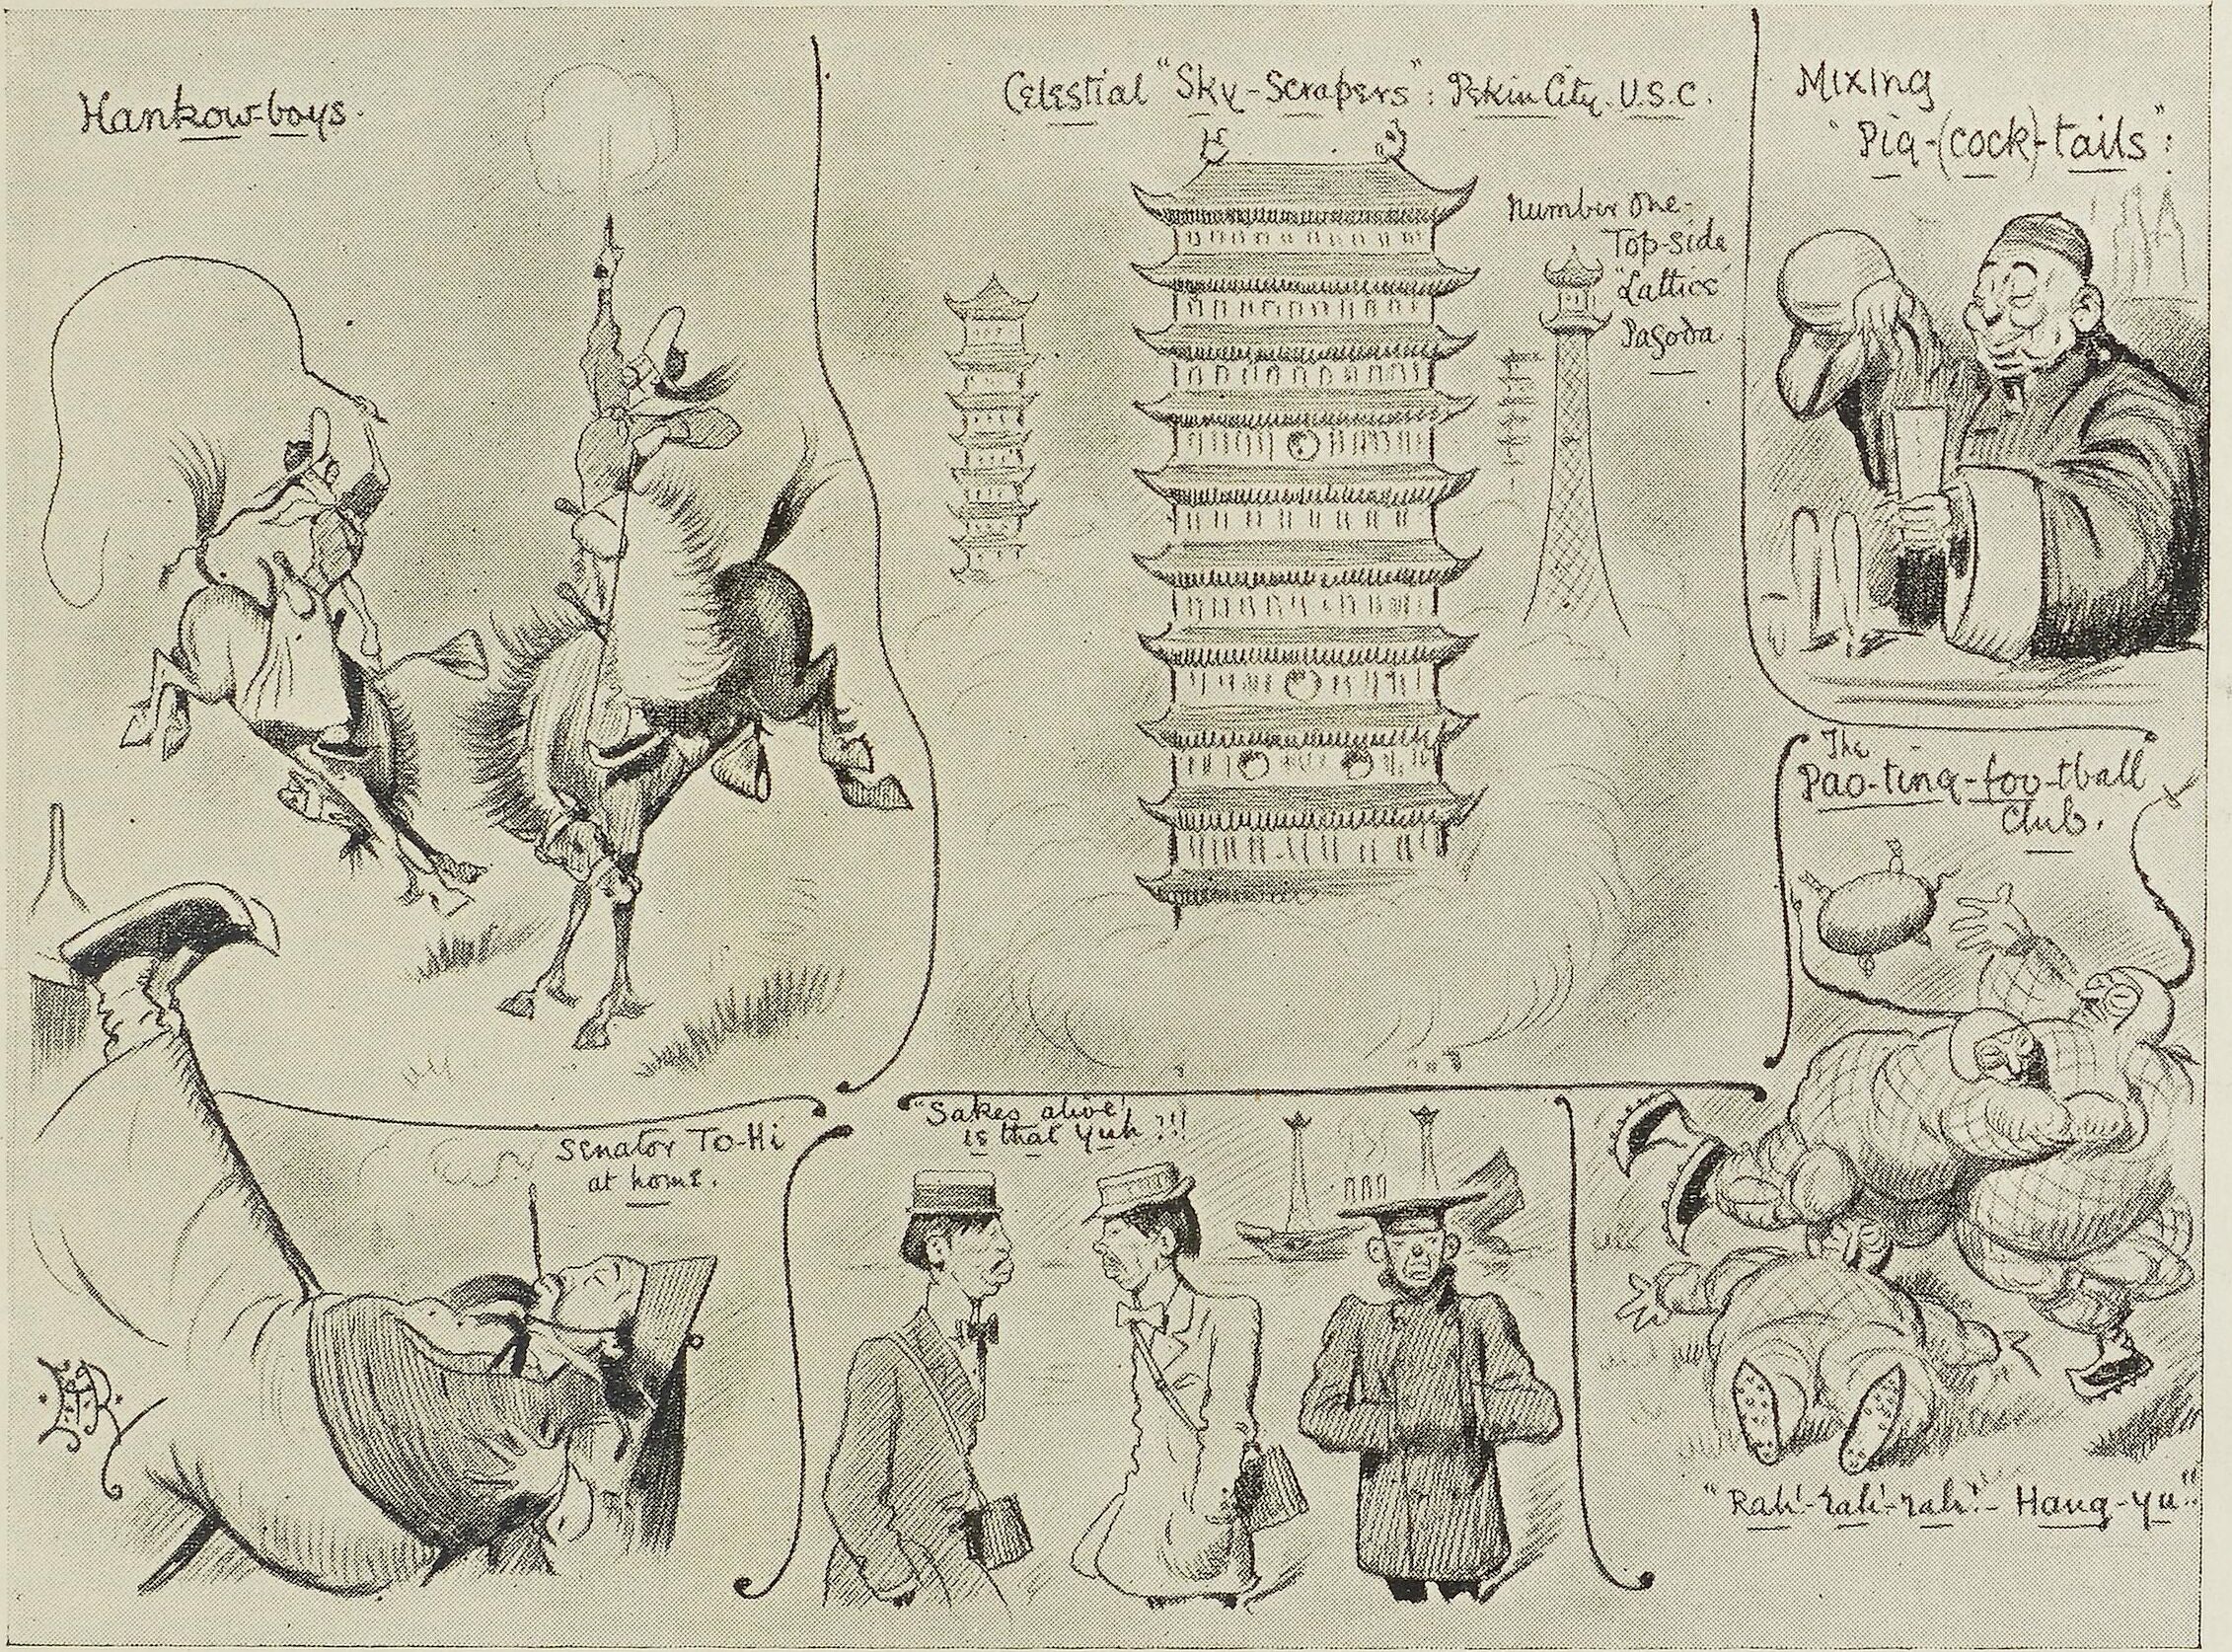 Hankow-boys.
Celestial "Sky-Scrapers": Pekin City. U.S.C.
Number One-
Top-side
"Lattice"
Pagoda.
Mixing
"Pig-(cock)-tails":
The
Pao-ting-foo-tball
Club.
Senator To-Hi
at home.
"Sakes alive!
is that Yuh?!!
"Rah!-rah!-rah!-Hang-yu"